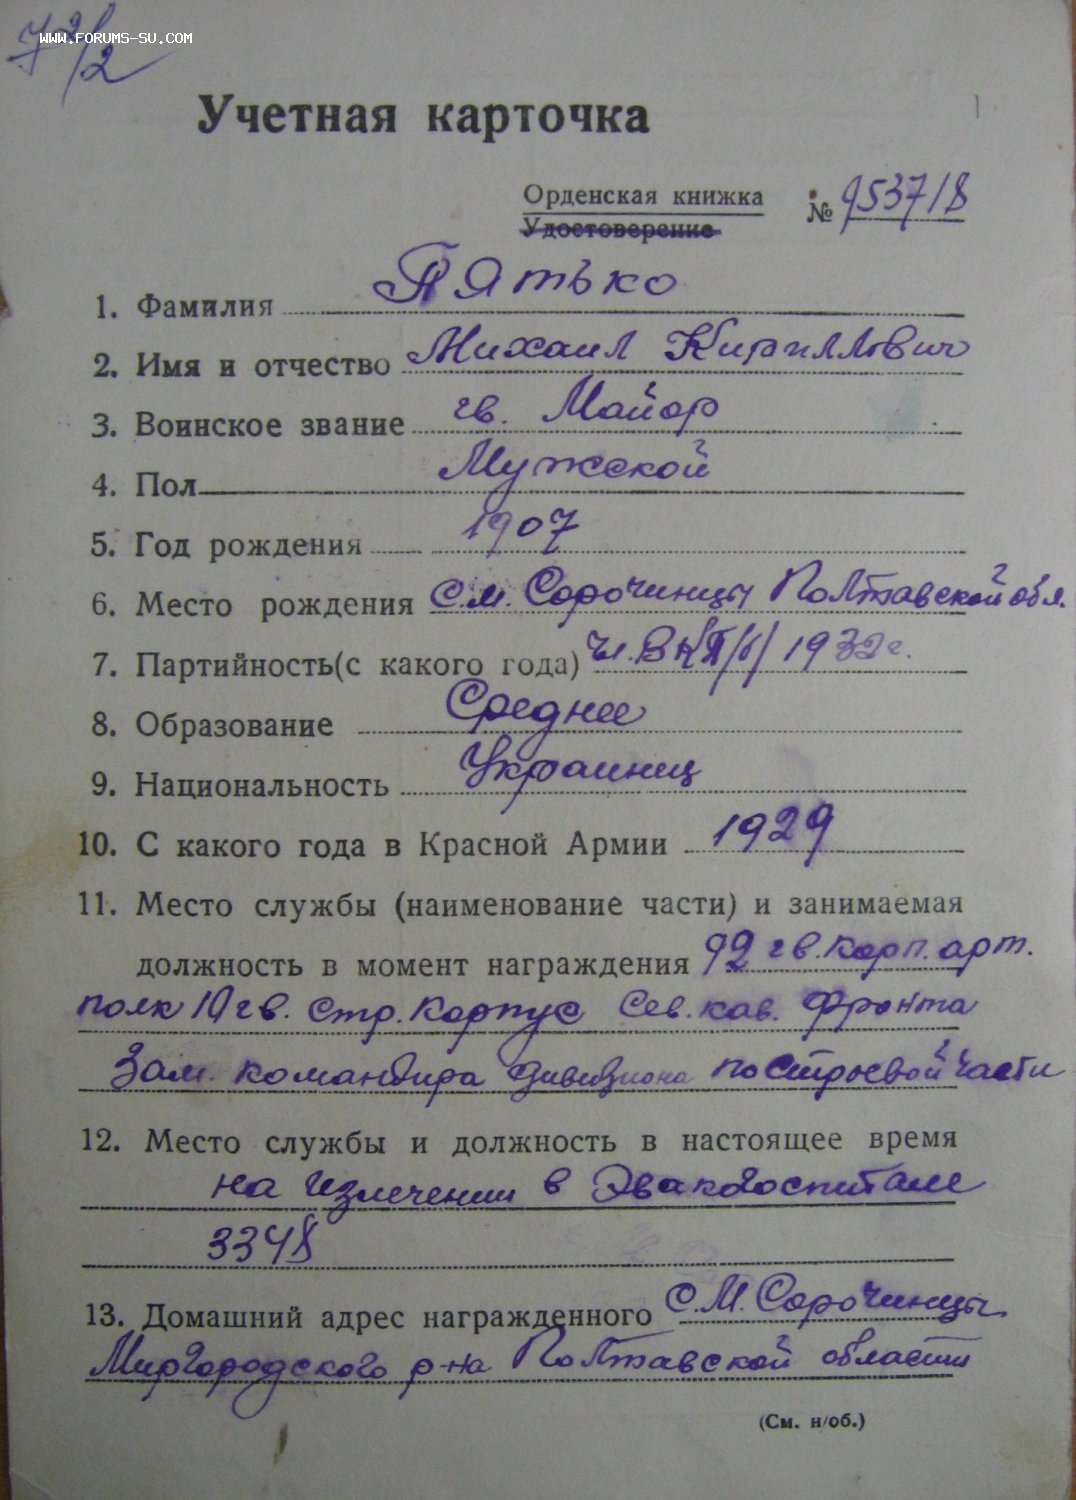 WWW.FORUMS-SU.COM
Учетная карточка
Орденская книжка № 953718
Удостоверение
1. Фамилия Пятько
2. Имя и отчество Михаил Кириллович
3. Воинское звание гв. Майор
4. Пол Мужской
5. Год рождения 1907
6. Место рождения с.м. Сорочинцы Полтавской обл.
7. Партийность(с какого года) чл. ВКП/б/ 1932 г.
8. Образование Среднее
9. Национальность Украинец
10. С какого года в Красной Армии 1929
11. Место службы (наименование части) и занимаемая
должность в момент награждения 92 гв. корп. арт.
полк 10 гв. стр. корпус Сев. кав. фронта
Зам. командира дивизиона по строевой части
12. Место службы и должность в настоящее время
на излечении в Эвакогоспитале
3348
13. Домашний адрес награжденного с.М. Сорочинцы
Миргородского р-на Полтавской области
(См. н/об.)